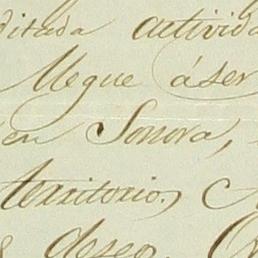 ditada activida
llegue áser
en Sonora,
territorio.
deseo.